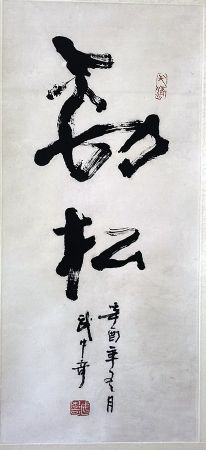 劲松
辛酉年冬月
武中奇